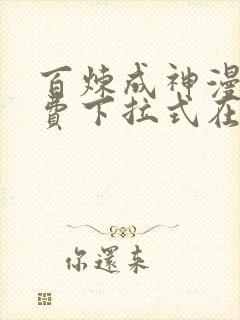 百炼成神漫
费下拉式在
你還來